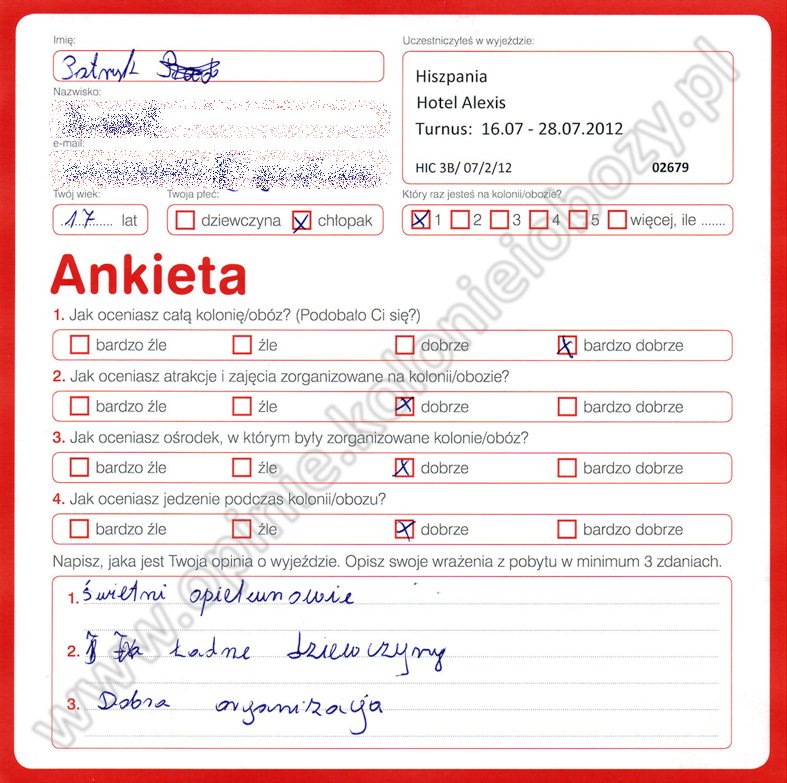 Imię:
Patryk
Nazwisko:
e-mail:
Twój wiek:
17 lat
Twoja płeć:
dziewczyna chłopak
Uczestniczyłeś w wyjeździe:
Hiszpania
Hotel Alexis
Turnus: 16.07 - 28.07.2012
HIC 3B/ 07/2/12 02679
Który raz jesteś na kolonii/obozie?
1 2 3 4 5 więcej, ile .......
Ankieta
1. Jak oceniasz całą kolonię/obóz? (Podobało Ci się?)
bardzo źle źle dobrze bardzo dobrze
2. Jak oceniasz atrakcje i zajęcia zorganizowane na kolonii/obozie?
bardzo źle źle dobrze bardzo dobrze
3. Jak oceniasz ośrodek, w którym były zorganizowane kolonie/obóz?
bardzo źle źle dobrze bardzo dobrze
4. Jak oceniasz jedzenie podczas kolonii/obozu?
bardzo źle źle dobrze bardzo dobrze
Napisz, jaka jest Twoja opinia o wyjeździe. Opisz swoje wrażenia z pobytu w minimum 3 zdaniach.
1. świetni opiekunowie
2. Ładne dziewczyny
3. Dobra organizacja
www.opinie.kolonieiobozy.pl